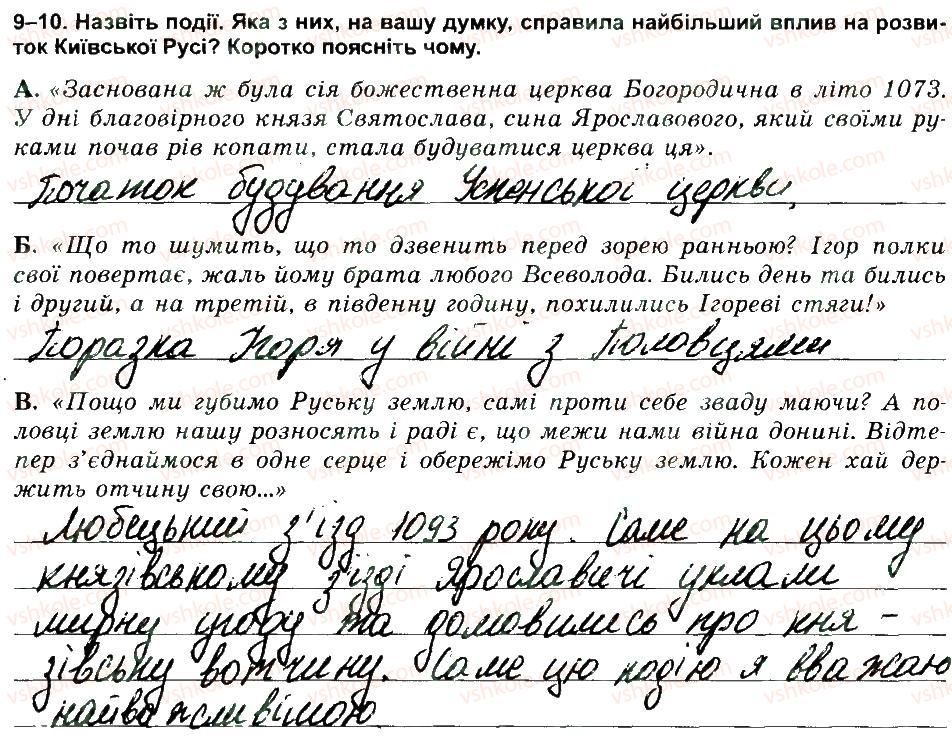 9–10. Назвіть події. Яка з них, на вашу думку, справила найбільший вплив на розви-
ток Київської Русі? Коротко поясніть чому.
А. «Заснована ж була сія божественна церква Богородична в літо 1073.
У дні благовірного князя Святослава, сина Ярославового, який своїми ру-
ками почав рів копати, стала будуватися церква ця».
Початок будування Успенської церкви,
Б. «Що то шумить, що то дзвенить перед зорею ранньою? Ігор полки
свої повертає, жаль йому брата любого Всеволода. Бились день та бились
і другий, а на третій, в південну годину, похилились Ігореві стяги!»
Поразка Ігоря у війні з Половцями
В. «Пощо ми губимо Руську землю, самі проти себе зваду маючи? А по-
ловці землю нашу розносять і раді є, що межи нами війна донині. Відте-
пер з’єднаймося в одне серце і обережімо Руську землю. Кожен хай дер-
жить отчину свою...»
Любецький з'їзд 1093 року. Саме на цьому
князівському з'їзді Ярославичі уклали
мирну угоду та домовились про кня-
зівську вотчину. Саме цю подію я вважаю
найважливішою